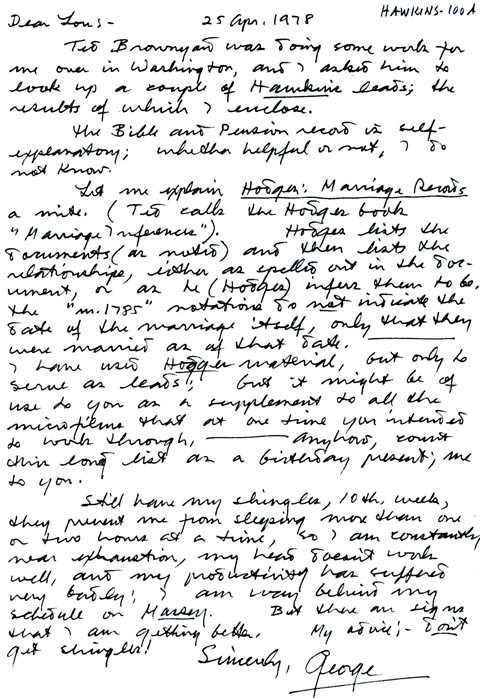 HAWKINS-100A
Dear Lou:- 25 Apr. 1978
Ted Brownyard was doing some work for
me over in Washington, and I asked him to
look up a couple of Hawkins leads; the
results of which I enclose.
The Bible and Pension record is self-
explanatory; whether helpful or not, I do
not know.
Let me explain Hodges: Marriage Records
a mite. (Ted calls the Hodges book
"Marriage Inferences"). Hodges lists the
documents (as noted) and then lists the
relationships, either as spelled out in the doc-
ument, or as he (Hodges) infers them to be.
The "m. 1785" notations do not indicate the
date of the marriage itself, only that they
were married as of that date.
I have used Hodges material, but only to
serve as leads; but it might be of
use to you as a supplement to all the
microfilms that at one time you intended
to work through, anyhow, count
this long list as a birthday present; me
to you.
Still have my shingles, 10th. week,
they prevent me from sleeping more than one
or two hours at a time, so I am constantly
near exhaustion, my head doesn't work
well, and my productivity has suffered
very badly; I am way behind my
schedule on Massey. But there are signs
that I am getting better. My advice;- don't
get shingles!
Sincerely, George